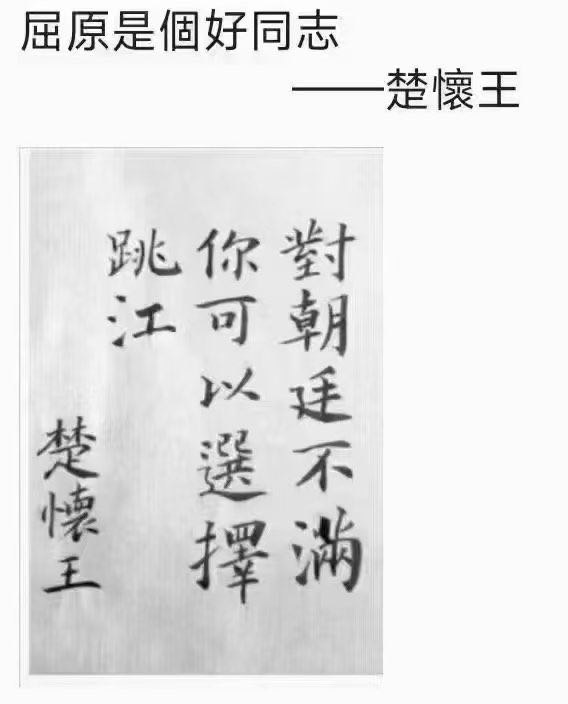 屈原是個好同志
——楚懷王
對朝廷不滿
你可以選擇
跳江
楚懷王